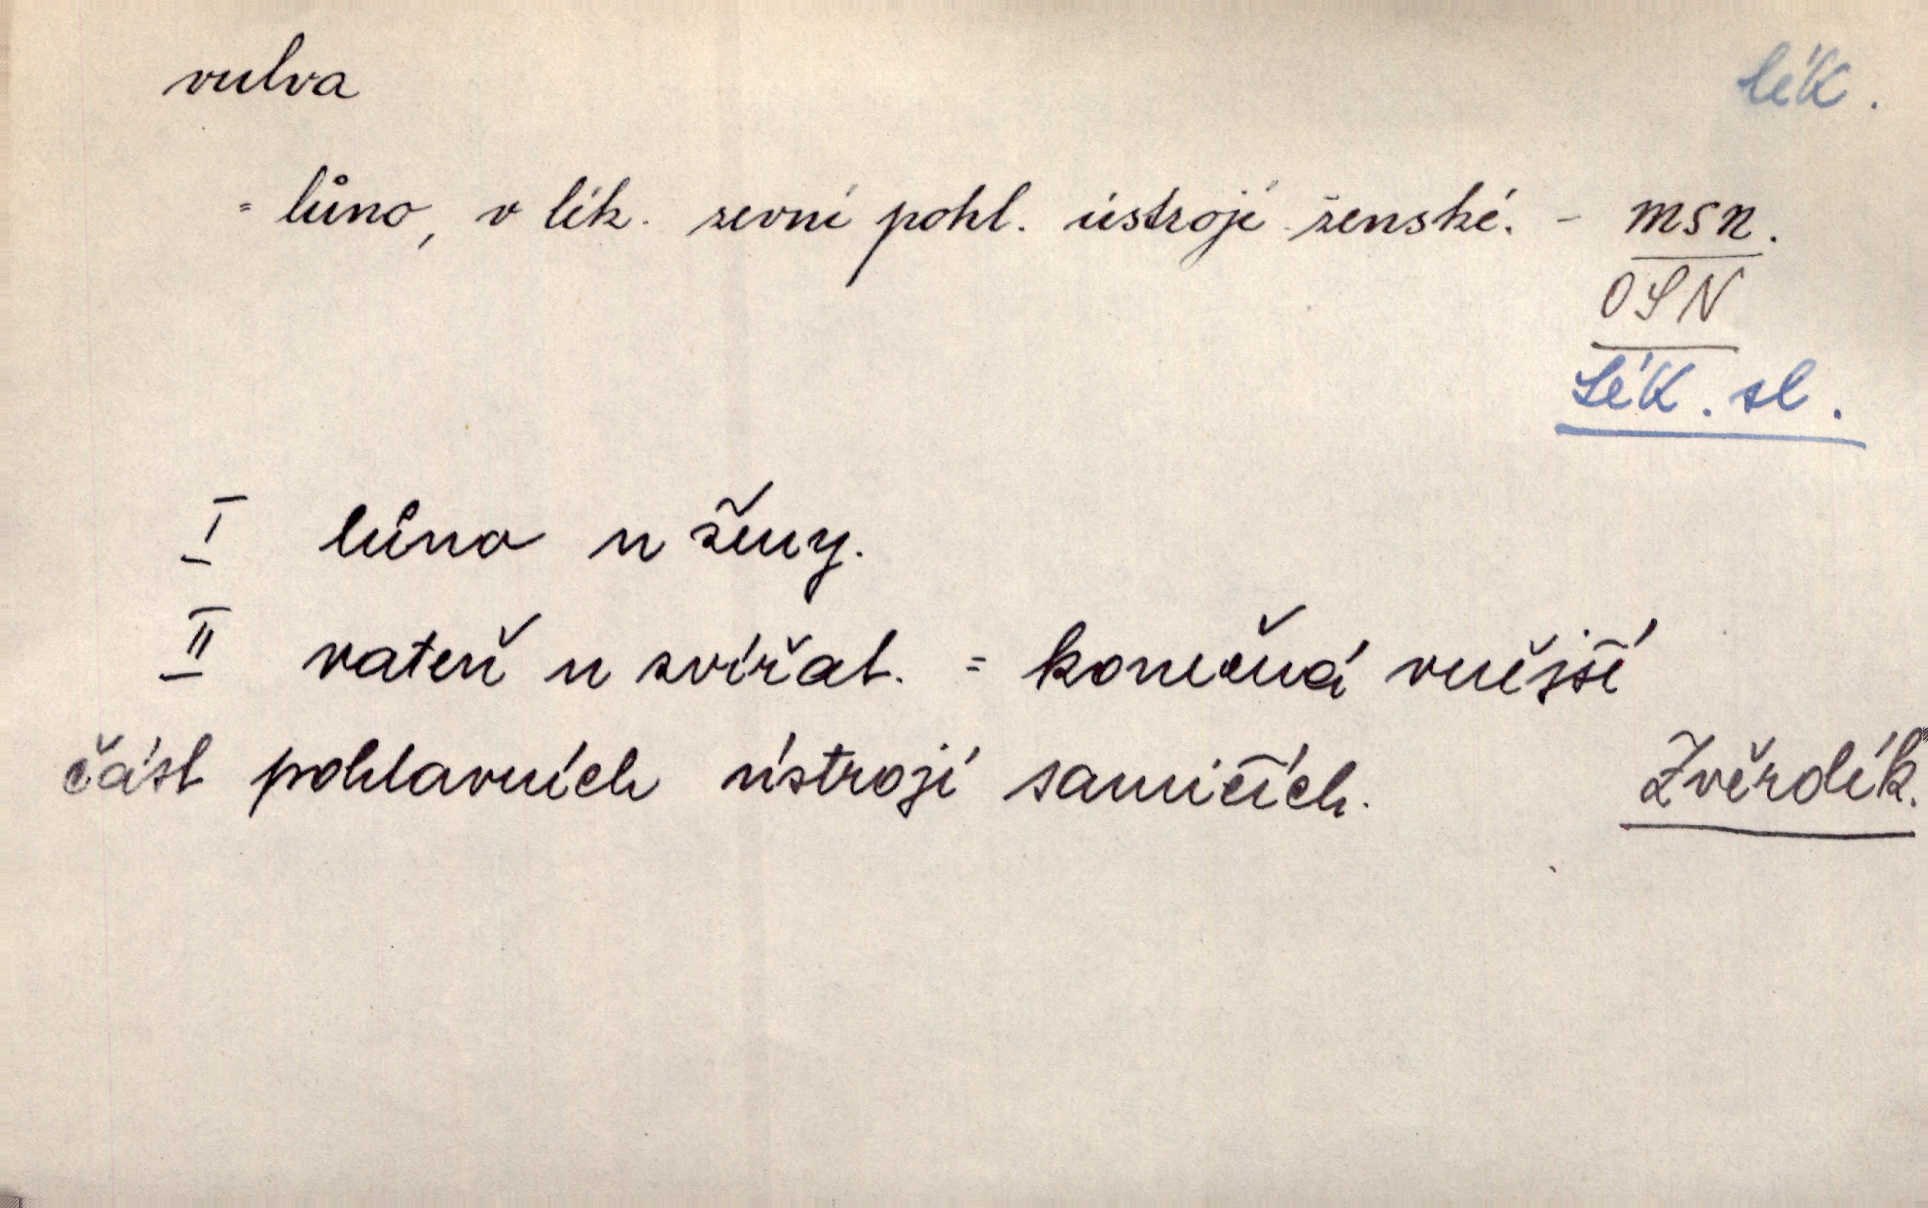 vulva
lék.
= lůno, v lék. zevní pohl. ústrojí ženské. - MSN.
OSN
Lék. sl.
I lůno u ženy.
II vateň u zvířat. = konečná vnější
část pohlavních ústrojí samičích. Zvěrolék.